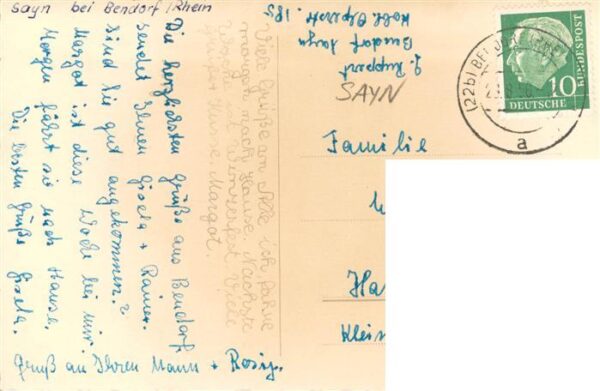 Sayn bei Bendorf/Rhein
Die herzlichsten Grüße aus Bendorf
sendet Ihnen Gisela + Rainer.
Sind Sie gut angekommen?
Margot ist diese Woche bei mir.
Morgen fährt sie nach Hause.
Die besten Grüße Gisela.
Gruß an Ihren Mann + Rosig.
Viele Grüße an Alle ich fahre
morgen nach Hause. Nächste
Woche ist Winzerfest. Viele
Grüße Margot.
J. Ruppert
Bendorf Sayn
185
SAYN
(22b) BEN
a
DEUTSCHE
BUNDESPOST
10
Familie
Ha
Klei